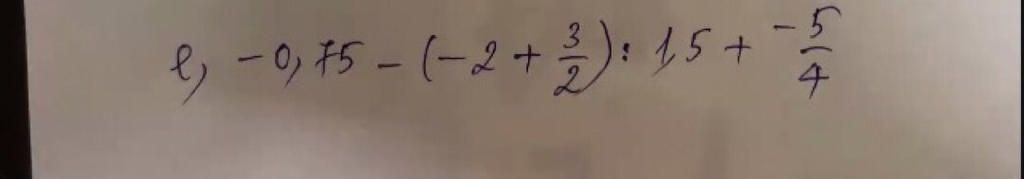 e, -0,75 - (-2 + 3/2) : 1,5 + -5/4